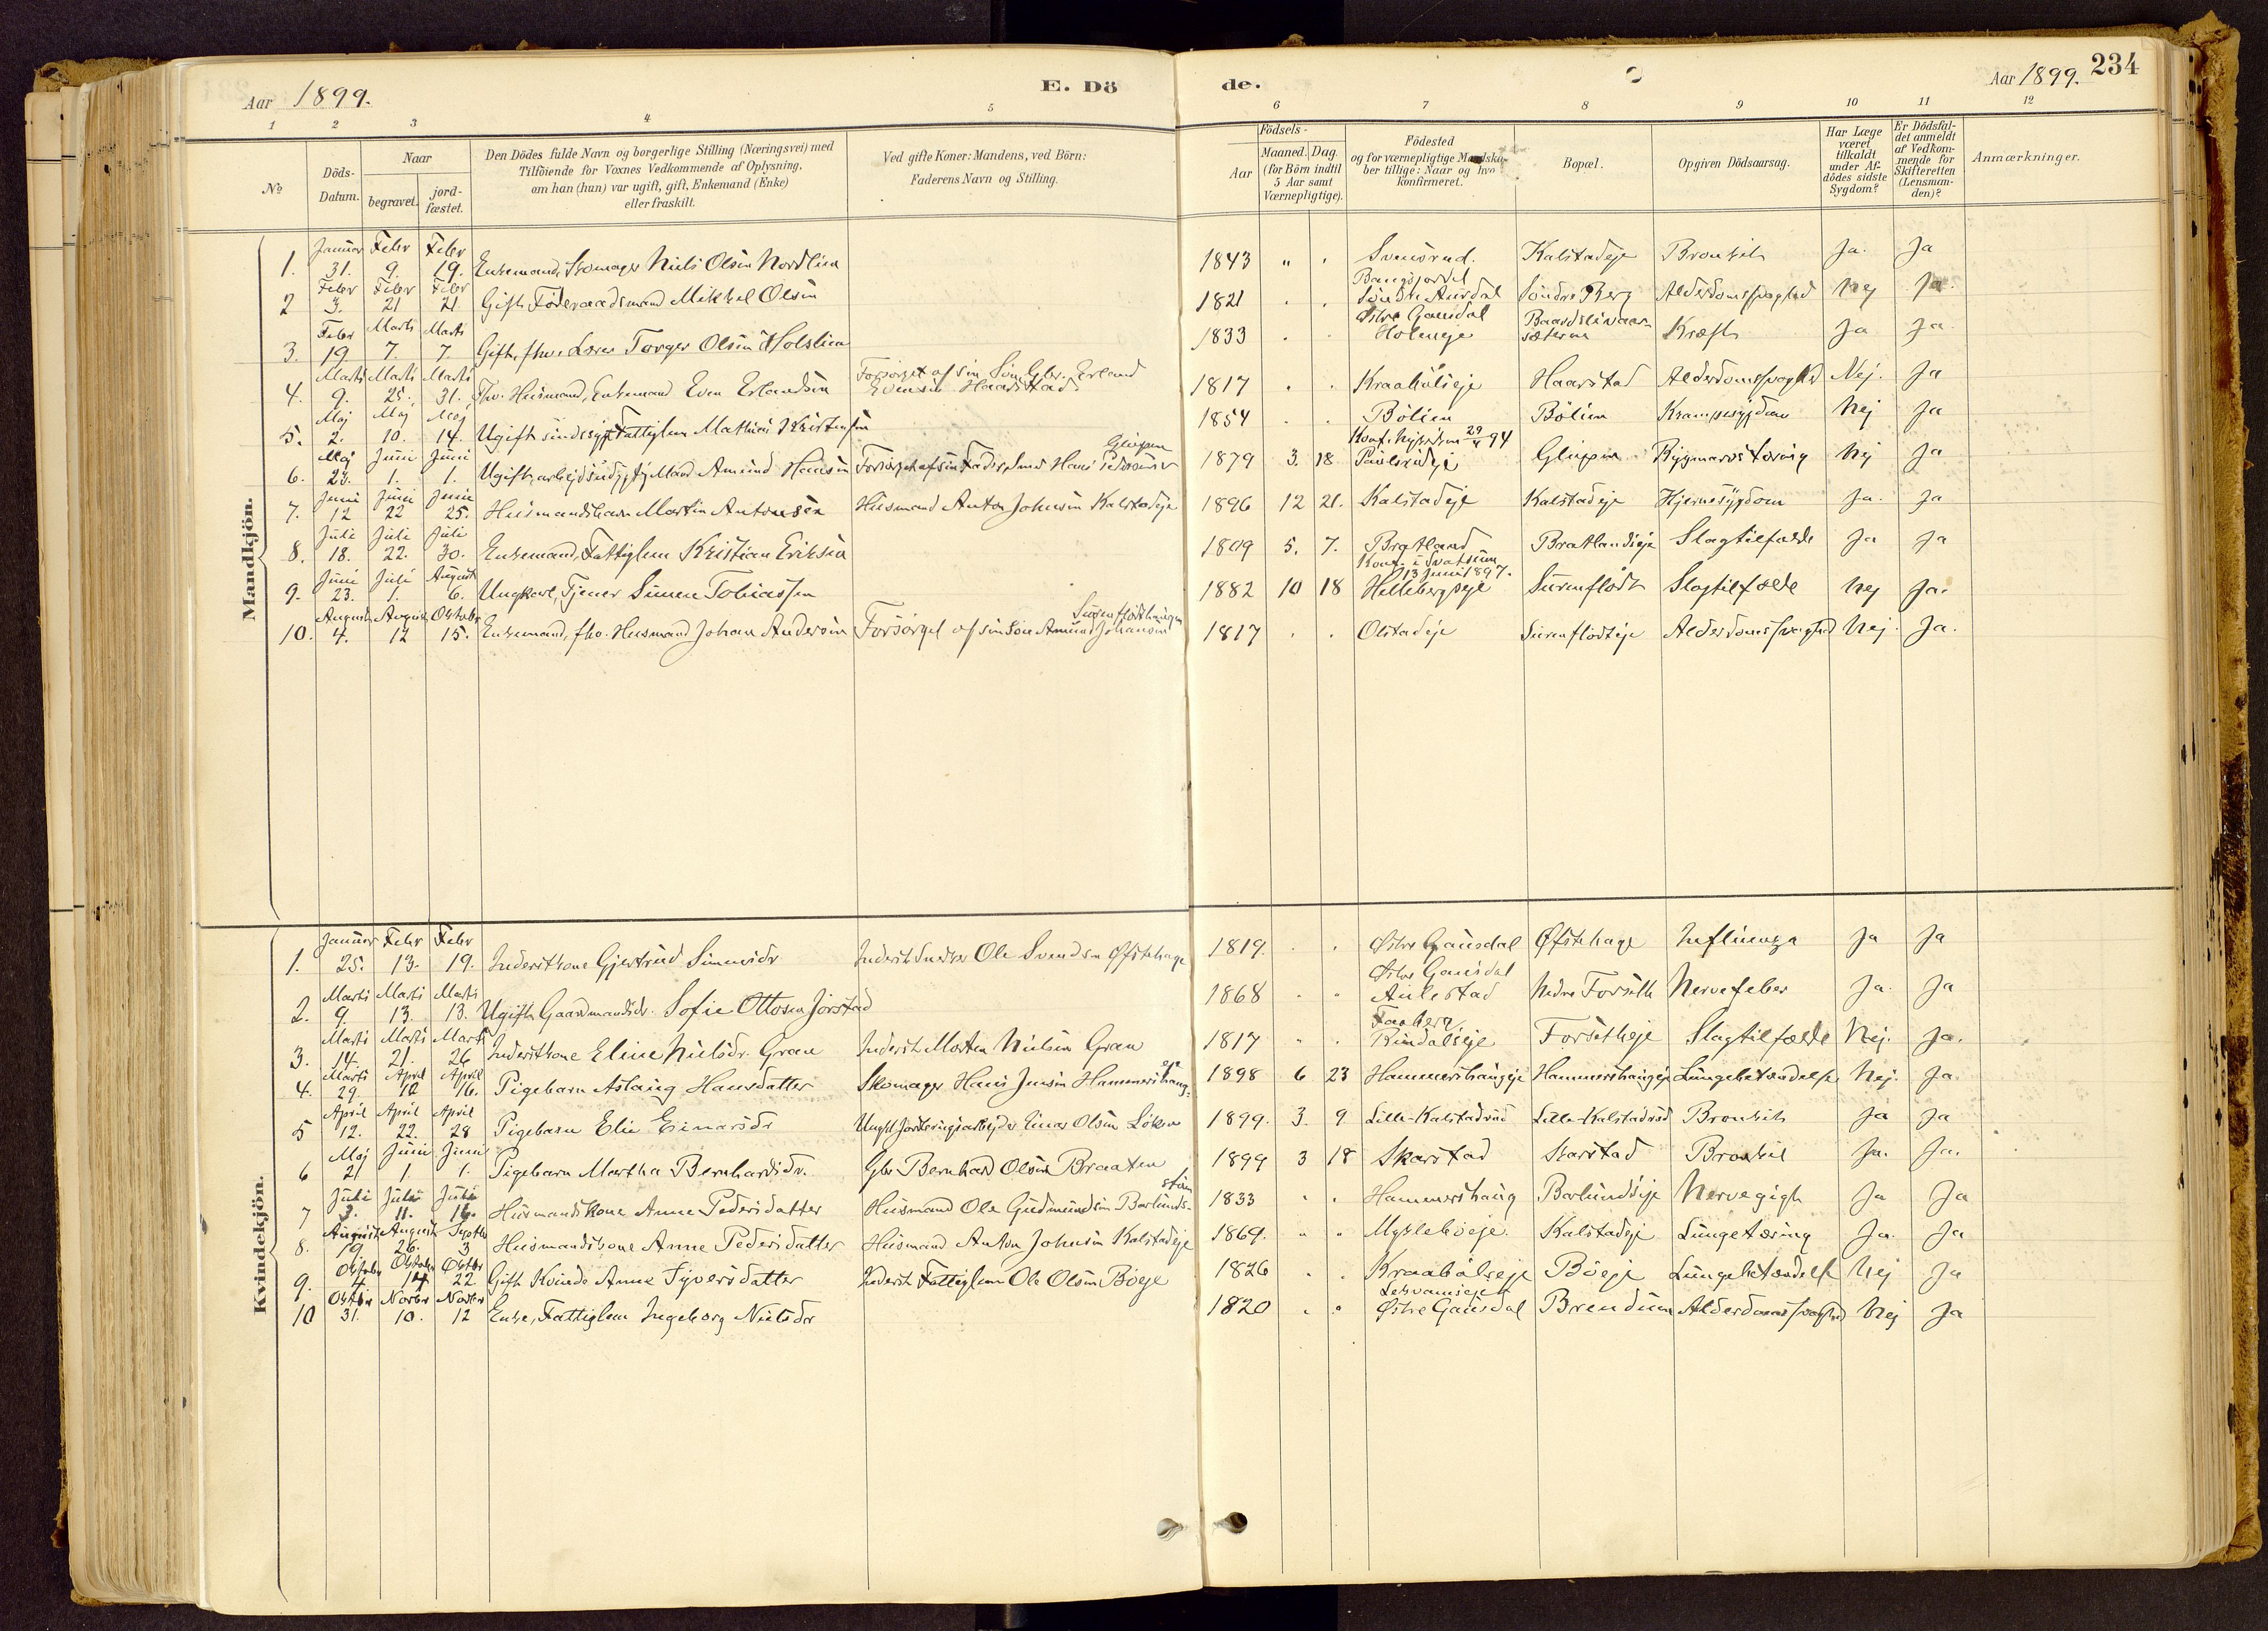 Aar 1899.
E. Dö
de.
Aar 1899. 234
1 2 3 4 5 6 7 8 9 10 11 12
№
Döds-Datum.
Naar
begravet.
jord-fæstet.
Den Dödes fulde Navn og borgerlige Stilling (Næringsvei) med
Tilföiende for Voxnes Vedkommende af Oplysning,
om han (hun) var ugift, gift, Enkemand (Enke)
eller fraskilt.
Ved gifte Koner: Mandens, ved Börn:
Faderens Navn og Stilling.
Födsels-
Aar
Maaned. Dag.
(for Börn indtil
5 Aar samt
Værnepligtige).
Födested
og for værnepligtige Mandska-
ber tillige: Naar og hvo
konfirmeret.
Bopæl.
Opgiven Dödsaarsag.
Har Læge
været
tilkaldt
under Af-
dödes sidste
Sygdom?
Er Dödsfal-
det anmeldt
af Vedkom-
mende for
Skifteretten
(Lensman-
den)?
Anmærkninger.
Mandkjön.
Januar Febr Febr
1. 31. 9. 19. Enkemand, Skomager Niels Olsen Nordlien 1843 " . Svensrud. Kalstadeje Bronkit Ja. Ja
Febr Febr Febr Bangsjordet
2 3. 21 21 Gift, Föderaadsmand Mikkel Olsen 1821 . . Söndre Aurdal Söndre Berg Alderdomssvaghed Nej Ja.
Febr Marts Marts Östre Gausdal Baardslivaar-
3. 19 7. 7. Gift, fhv. Lærer Torger Olsen Holslien 1833 . . Holeneje sæteren Kræft Ja Ja
Marts Marts Marts Forsörget af sin Sön, Gbr. Erland
4. 9. 25. 31. Fhv. Husmand, Enkemand Even Erlandsen Evensen Haarstad 1817 . . Kraabölseje Haarstad Alderdomssvaghed Nej. Ja
Maj Maj Maj
5. 2. 10. 14. Ugift sindssyg Fattiglem Mathias Kristensen 1854 . . Bölien Bölien Krampesygdom Nej Ja
Maj Juni Juni Glispen Konf. 94
6. 23. 1. 1. Ugift, arbejdsudygtig Mand Amund Hansen Forsörget af sin Fader, Hans Pedersen 1879 3. 18 Paulsrudeje Glispen Rygmarvstæring Nej Ja
Juni Juni Junie
7. 12 22 25. Husmandsbarn Martin Antonsen Husmand Anton Johnsen Kalstadeje 1896 12 21. Kalstadeje Kalstadeje Hjernesygdom Ja. Ja
Juli Juli Juli
8. 18. 22. 30. Enkemand, Fattiglem Kristian Eriksen 1809 5. 7. Bratland Bratlandseje Slagtilfælde Ja Ja
Juni Juli August Konf. i Svatsum
13 Juni 1897.
9. 23. 1. 6. Ungkarl, Tjener Simen Tobiassen 1882 10 18 Hellebergseje Surenflodt Slagtilfælde Nej Ja.
August August Oktober Surenflodthaugen
10. 4. 12 15. Enkemand, fhv. Husmand Johan Andersen Forsörget af sin Sön Amund Johansen 1817 . . Olstadeje Surenflodteje Alderdomssvaghed Nej. Ja.
Kvindekjön.
Januar Febr Febr
1. 25. 13. 19. Inderstkone Gjertrud Simensdr Inderst Snedker Ole Svendsen Øfstehage 1819. . . Østre Gausdal Øfstehage Influenza Ja Ja
Marts Marts Marts Østre Gausdal
2. 9 13. 13. Ugift Gaardmandsdr. Sofie Ottosen Jörstad 1868 . . Aulestad Nedre Forseth Nervefeber Ja. Ja
Marts Marts Marts Faaberg
3. 14. 21. 26 Inderstkone Eline Nielsdr. Gran Inderst Morten Nielsen Gran 1817 . . Rindalseje Forsetheje Slagtilfælde Nej. Ja.
Marts April April eje
4. 29 12 16. Pigebarn Aslaug Hansdatter Skomager Hans Jensen Hammershaug- 1898 6 23 Hammershaugeje Hammershaugeje Lungebetændelse Nej. Ja.
April April April
5 12. 22. 28 Pigebarn Elie Einarsdr Ungk. Einar Olsen Löken 1899. 3. 9 Lille-Kalstadrud Lille-Kalstadrud Bronkit Ja Ja
Maj Juni Juni
6 21 1. 1. Pigebarn Martha Bernhardsdr. Gbr Bernhard Olsen Braaten 1899 3 18 Skarstad Skarstad Bronkit Ja. Ja.
Juli Juli Juli
7 3. 11. 16. Husmandskone Anne Pedersdatter Husmand Ole Gudmundsen Barlunds- 1833 . . Hammershaug Barlundseje Nervegigt Ja Ja
August August Septbr
8. 19. 26. 3 Husmandskone Anne Pedersdatter Husmand Anton Johnsen Kalstadeje 1869. . . Mykleböeje. Kalstadeje Lungetæring Ja. Ja
Oktober Oktober Oktbr
9. 4 14 22 Gift Kvinde Anne Syversdatter Inderst Fattiglem Ole Olsen Böeje 1826 . . Kraabölseje Böeje Lungebetændelse Nej Ja
Oktbr Novbr Novbr
10 31. 10. 12 Enke, Fattiglem Ingeborg Nielsdr 1820 . . Østre Gausdal Brendum Alderdomssvaghed Nej Ja